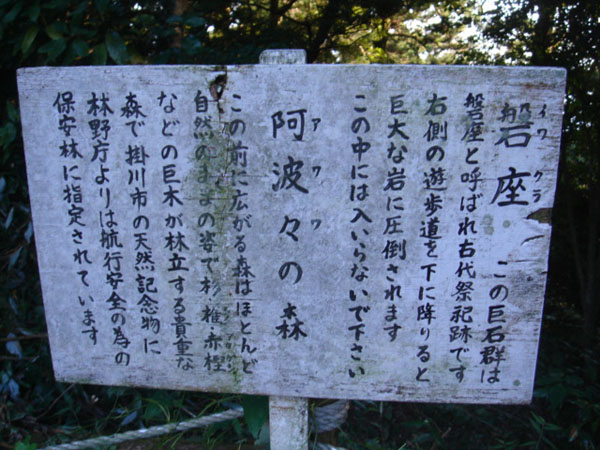 磐座 イワクラ この巨石群は
磐座と呼ばれ古代祭祀跡です
右側の遊歩道を下に降りると
巨大な岩に圧倒されます
この中には入いらないで下さい
阿波々の森 アワワ
この前に広がる森はほとんど
自然のままの姿で杉・椎・赤樫
などの巨木が林立する貴重な
森で掛川市の天然記念物に
林野庁よりは航行安全の為の
保安林に指定されています